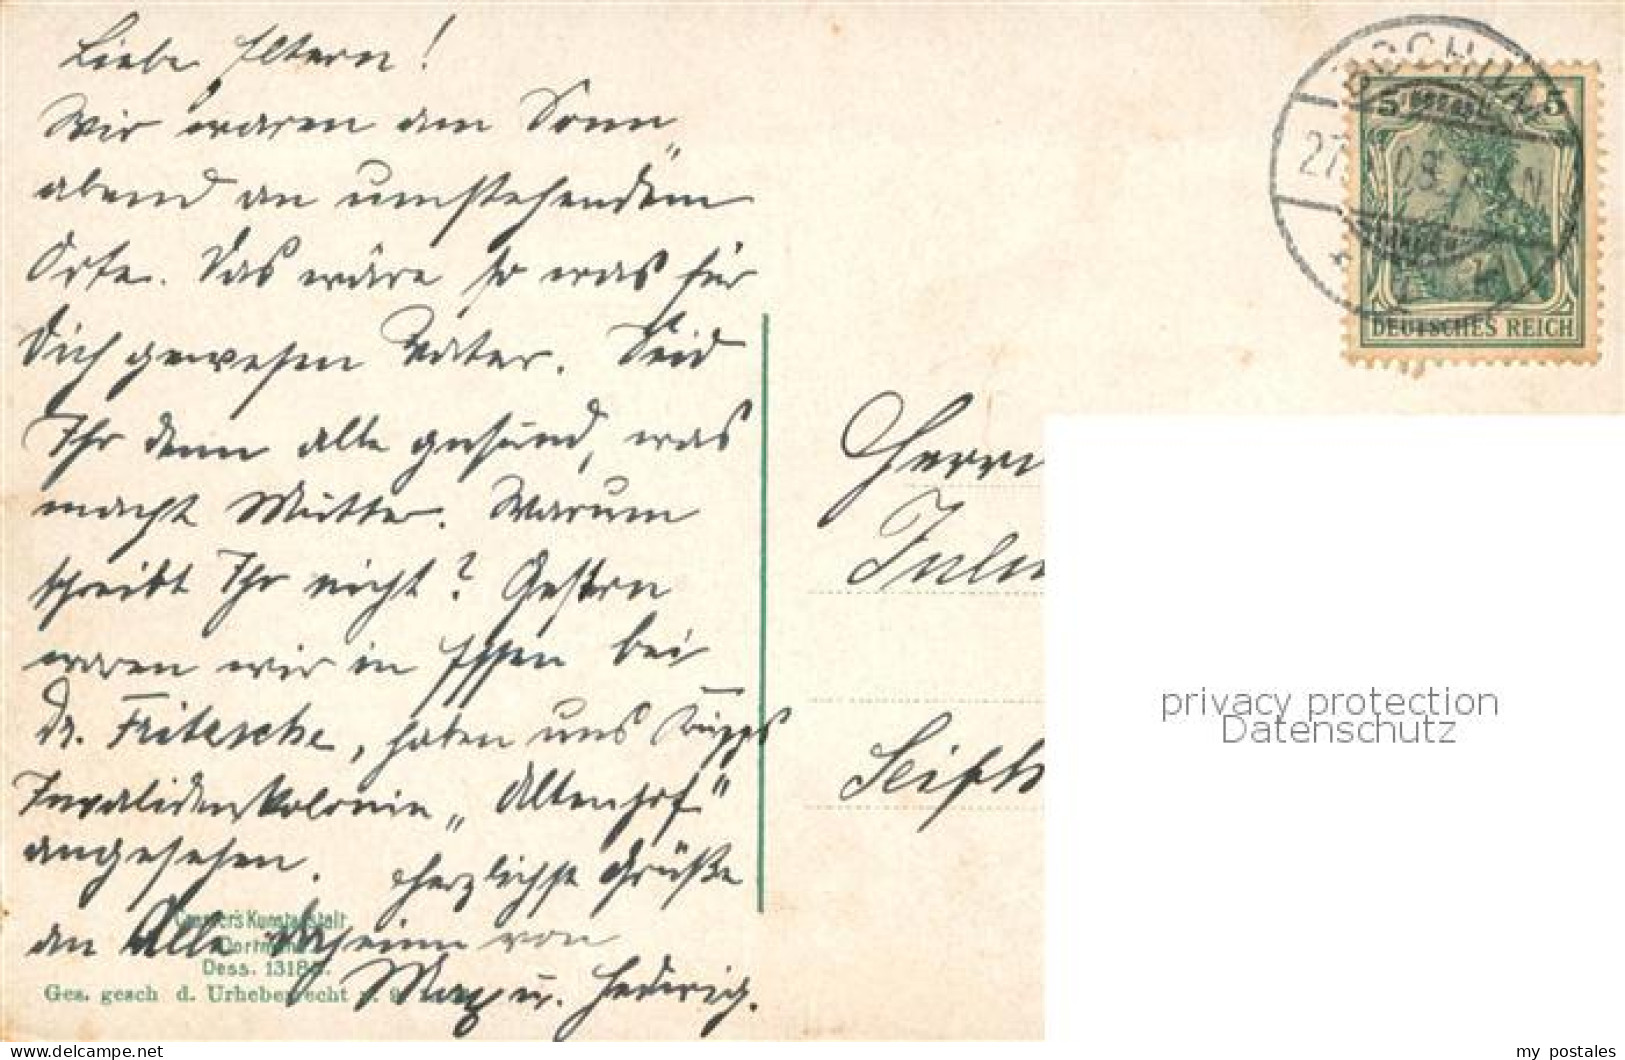 Liebe Eltern!
Wir waren am Sonn„
abend an umstehendem
Orte. Das wäre so was für
Dich gewesen Vater. Seid
Ihr denn alle gesund, was
macht Mutter. Warum
schreibt Ihr nicht? Gestern
waren wir in Essen bei
Dr. Fritzsche, haben uns Krupps
Invalidenkolonie „Altenhof“
angesehen. Herzlichste Grüße
an Alle daheim von
Max u. Hedwig.
Kunstanstalt
Dortmund
Dess. 1318
Ges. gesch d. Urheberrecht
BOCHUM
27. 08. N
5 5
DEUTSCHES REICH
Herrn
Seifh
privacy protection
Datenschutz
my_postales